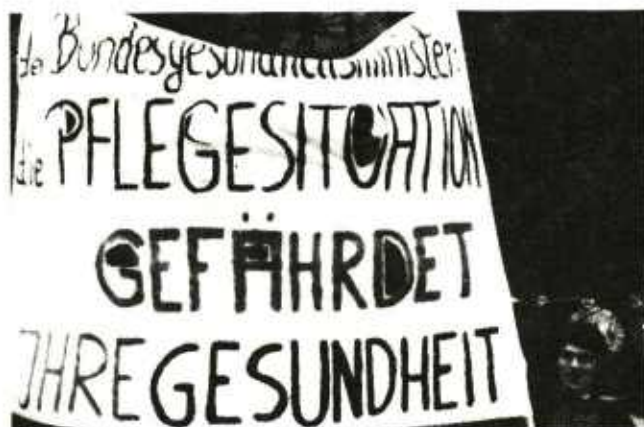 der Bundesgesundheitsminister:
die PFLEGESITUATION
GEFÄHRDET
IHRE GESUNDHEIT